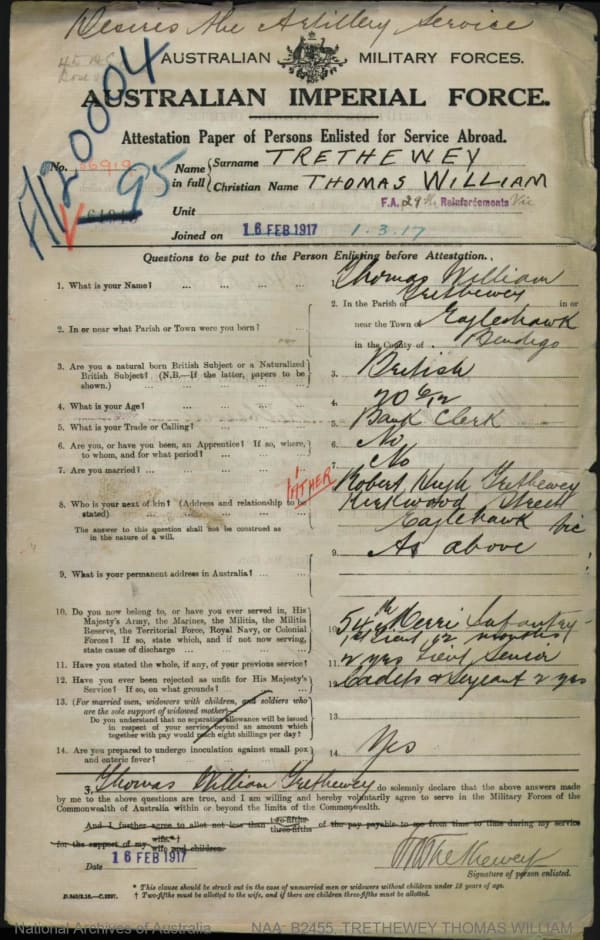 Desires the Artillery Service
AUSTRALIAN MILITARY FORCES.
AUSTRALIAN IMPERIAL FORCE.
Attestation Paper of Persons Enlisted for Service Abroad.
No. 56919
Name in full
Surname TRETHEWEY
Christian Name THOMAS WILLIAM
95
Unit F.A. 29th Reinforcements Vic
Joined on 16 FEB 1917 1.3.17
Questions to be put to the Person Enlisting before Attestation.
1. What is your Name? ... ... ... ... 1. Thomas William
Trethewey
2. In or near what Parish or Town were you born? ... 2. In the Parish of in or
near the Town of Eaglehawk
in the County of Bendigo
3. Are you a natural born British Subject or a Naturalized
British Subject? (N.B.—If the latter, papers to be
shown.) 3. British
4. What is your Age? 4. 20 6/12
5. What is your Trade or Calling? 5. Bank Clerk
6. Are you, or have you been, an Apprentice? If so, where,
to whom, and for what period? 6. No
7. Are you married? 7. No
FATHER
8. Who is your next of kin? (Address and relationship to be
stated) Robert Hugh Trethewey
Kirkwood Street
Eaglehawk Vic
The answer to this question shall not be construed as
in the nature of a will.
9. What is your permanent address in Australia? 9. As above
10. Do you now belong to, or have you ever served in, His
Majesty's Army, the Marines, the Militia, the Militia
Reserve, the Territorial Force, Royal Navy, or Colonial
Forces? If so, state which, and if not now serving,
state cause of discharge 10. 54th Merri Infantry
Lieut 12 months
11. Have you stated the whole, if any, of your previous service? 11. 2 yrs Lieut Senior
12. Have you ever been rejected as unfit for His Majesty's
Service? If so, on what grounds? 12. Cadets & Sergeant 2 yrs
13. (For married men, widowers with children, and soldiers who
are the sole support of widowed mother)
Do you understand that no separation allowance will be issued
in respect of your service beyond an amount which
together with pay would reach eight shillings per day? 13.
14. Are you prepared to undergo inoculation against small pox
and enteric fever? 14. Yes
I, Thomas William Trethewey do solemnly declare that the above answers made
by me to the above questions are true, and I am willing and hereby voluntarily agree to serve in the Military Forces of the
Commonwealth of Australia within or beyond the limits of the Commonwealth.
And I further agree to allot not less than two-fifths three-fifths of the pay payable to me from time to time during my service
for the support of my wife.* † wife and children.
Date 16 FEB 1917
TWTrethewey
Signature of person enlisted.
* This clause should be struck out in the case of unmarried men or widowers without children under 18 years of age.
† Two-fifths must be allotted to the wife, and if there are children three-fifths must be allotted.
National Archives of Australia NAA: B2455, TRETHEWEY THOMAS WILLIAM